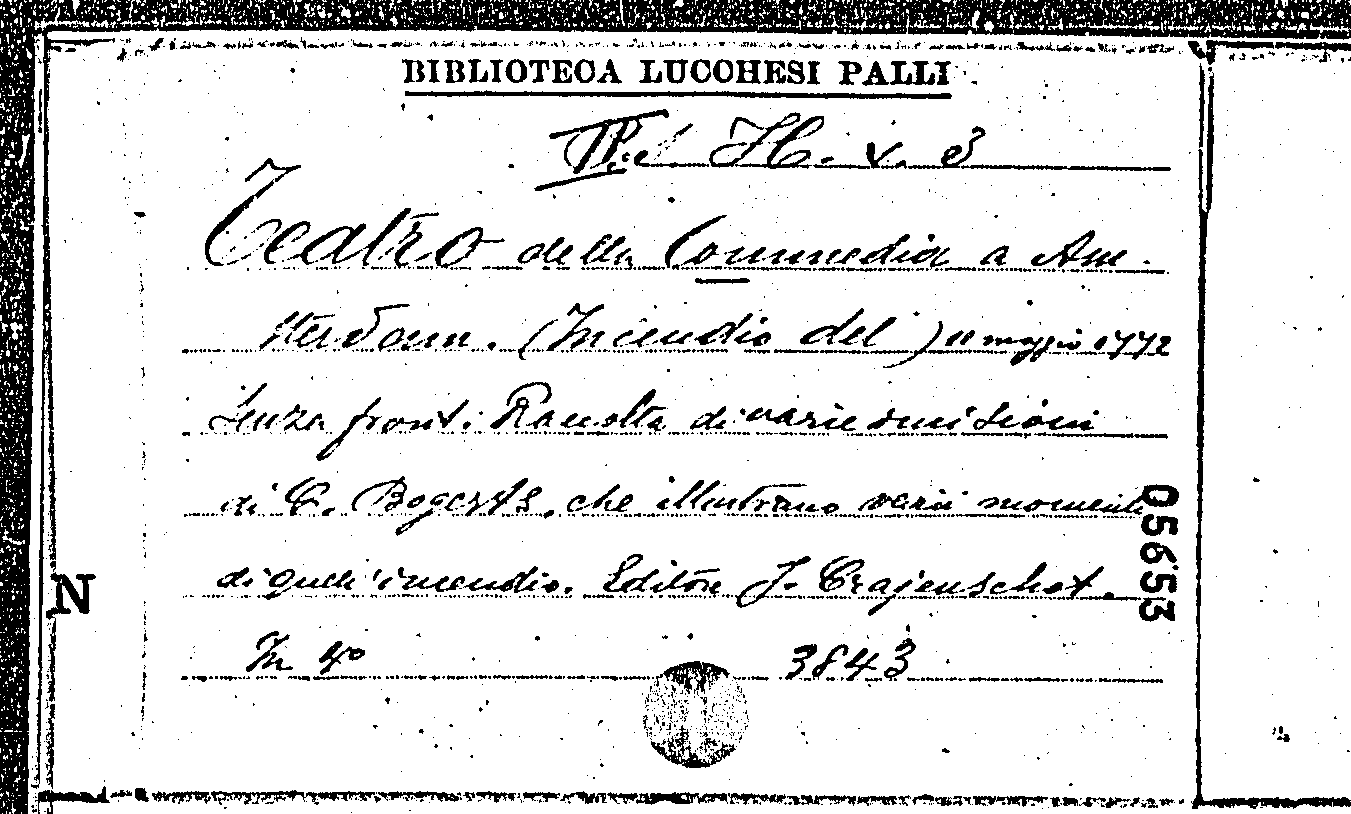 BIBLIOTECA LUCCHESI PALLI
H. V. 3
Teatro della Commedia a Am-
sterdam. (Incendio del) 11 maggio 1772
Senza front. Raccolta di varie incisioni
di C. Bogerts, che illustrano varii momenti
di quell'incendio. Editore J. Crajenschot.
In 4° 3843
N
05653